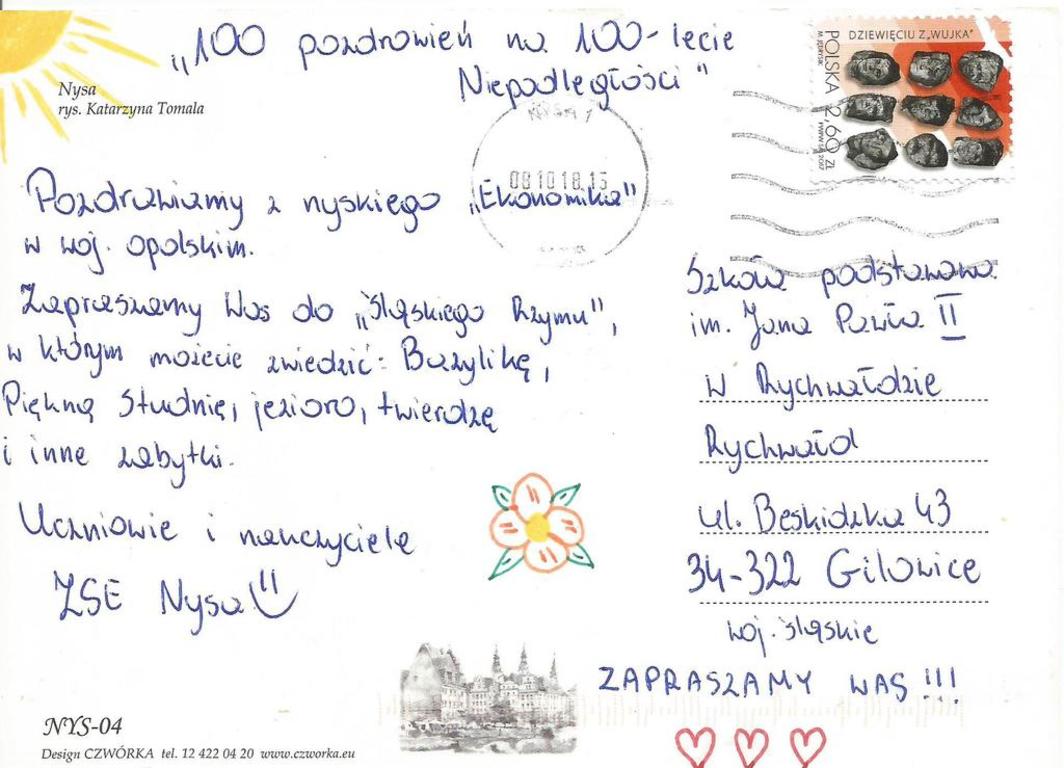 „100 pozdrowień na 100-lecie
Niepodległości"
Nysa
rys. Katarzyna Tomala
DZIEWIĘCIU Z „WUJKA"
POLSKA 2,60 ZŁ
NYSA 1
08 10 18.15
Pozdrawiamy z nyskiego „Ekonomika"
w woj. opolskim.
Zapraszamy Was do „Śląskiego Rzymu",
w którym możecie zwiedzić: Bazylikę,
Piękną Studnię, jezioro, twierdzę
i inne zabytki.
Uczniowie i nauczyciele
ZSE Nysa
Szkoła podstawowa
im. Jana Pawła II
w Rychwałdzie
Rychwałd
ul. Beskidzka 43
34-322 Gilowice
woj. śląskie
ZAPRASZAMY WAS !!!
NYS-04
Design CZWÓRKA tel. 12 422 04 20 www.czworka.eu